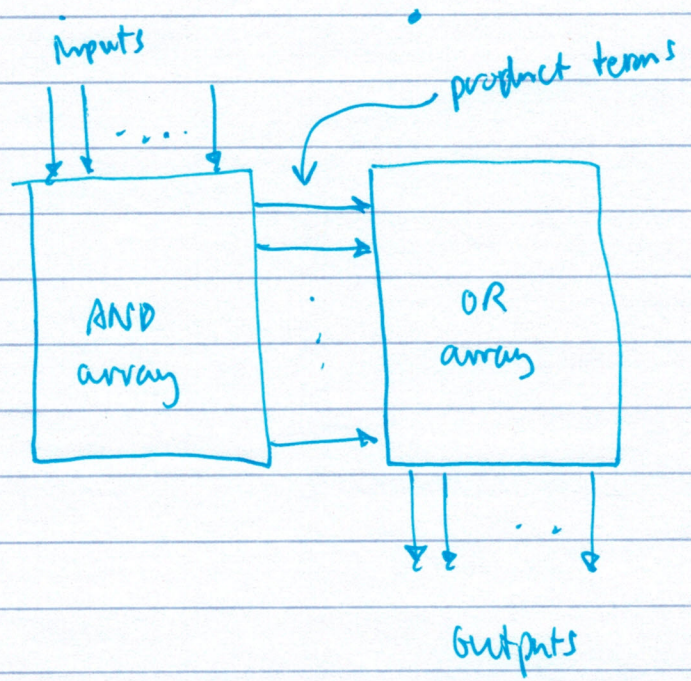 inputs
product terms
AND
array
OR
array
outputs